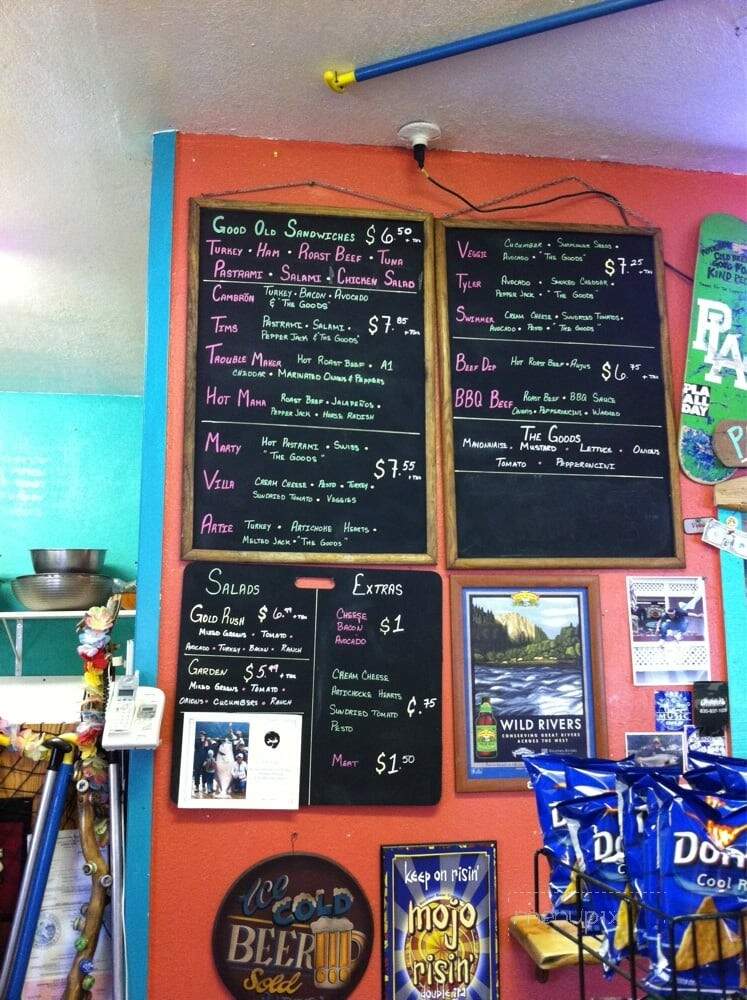 GOOD OLD SANDWICHES $6.50 + TAX
TURKEY • HAM • ROAST BEEF • TUNA
PASTRAMI • SALAMI • CHICKEN SALAD
CAMBRÖN TURKEY • BACON • AVOCADO
& "THE GOODS"
TIMS PASTRAMI • SALAMI • $7.85 + TAX
PEPPER JACK & "THE GOODS"
TROUBLE MAKER HOT ROAST BEEF • A1
CHEDDAR • MARINATED ONIONS & PEPPERS
HOT MAMA ROAST BEEF • JALAPEÑOS •
PEPPER JACK • HORSE RADISH
MARTY HOT PASTRAMI • SWISS •
"THE GOODS"
$7.55 + TAX
VILLA CREAM CHEESE • PESTO • TURKEY •
SUNDRIED TOMATO • VEGGIES
ARTIE TURKEY • ARTICHOKE HEARTS •
MELTED JACK • "THE GOODS"
VEGGIE CUCUMBER • SUNFLOWER SEEDS •
AVOCADO • "THE GOODS"
$7.25 + TAX
TYLER AVOCADO • SMOKED CHEDDAR •
PEPPER JACK • "THE GOODS"
SWIMMER CREAM CHEESE • SUNDRIED TOMATOS •
AVOCADO • PESTO • "THE GOODS"
BEEF DIP HOT ROAST BEEF • AUJUS
$6.75 + TAX
BBQ BEEF ROAST BEEF • BBQ SAUCE
ONIONS • PEPPERONCINI • WARMED
THE GOODS
MAYONNAISE • MUSTARD • LETTUCE • ONIONS
TOMATO • PEPPERONCINI
SALADS
GOLD RUSH $6.99 + TAX
MIXED GREENS • TOMATO •
AVOCADO • TURKEY • BACON • RANCH
GARDEN $5.99 + TAX
MIXED GREENS • TOMATO •
ONIONS • CUCUMBERS • RANCH
EXTRAS
CHEESE
BACON $1
AVOCADO
CREAM CHEESE
ARTICHOKE HEARTS
SUNDRIED TOMATO ¢.75
PESTO
MEAT $1.50
WILD RIVERS
CONSERVING GREAT RIVERS
ACROSS THE WEST
PLA
PLA
ALL
DAY
MUSIC
Ice
COLD
BEER
Sold
KEEP ON RISIN'
mojo
risin'
double ipa
Cool R
menupix